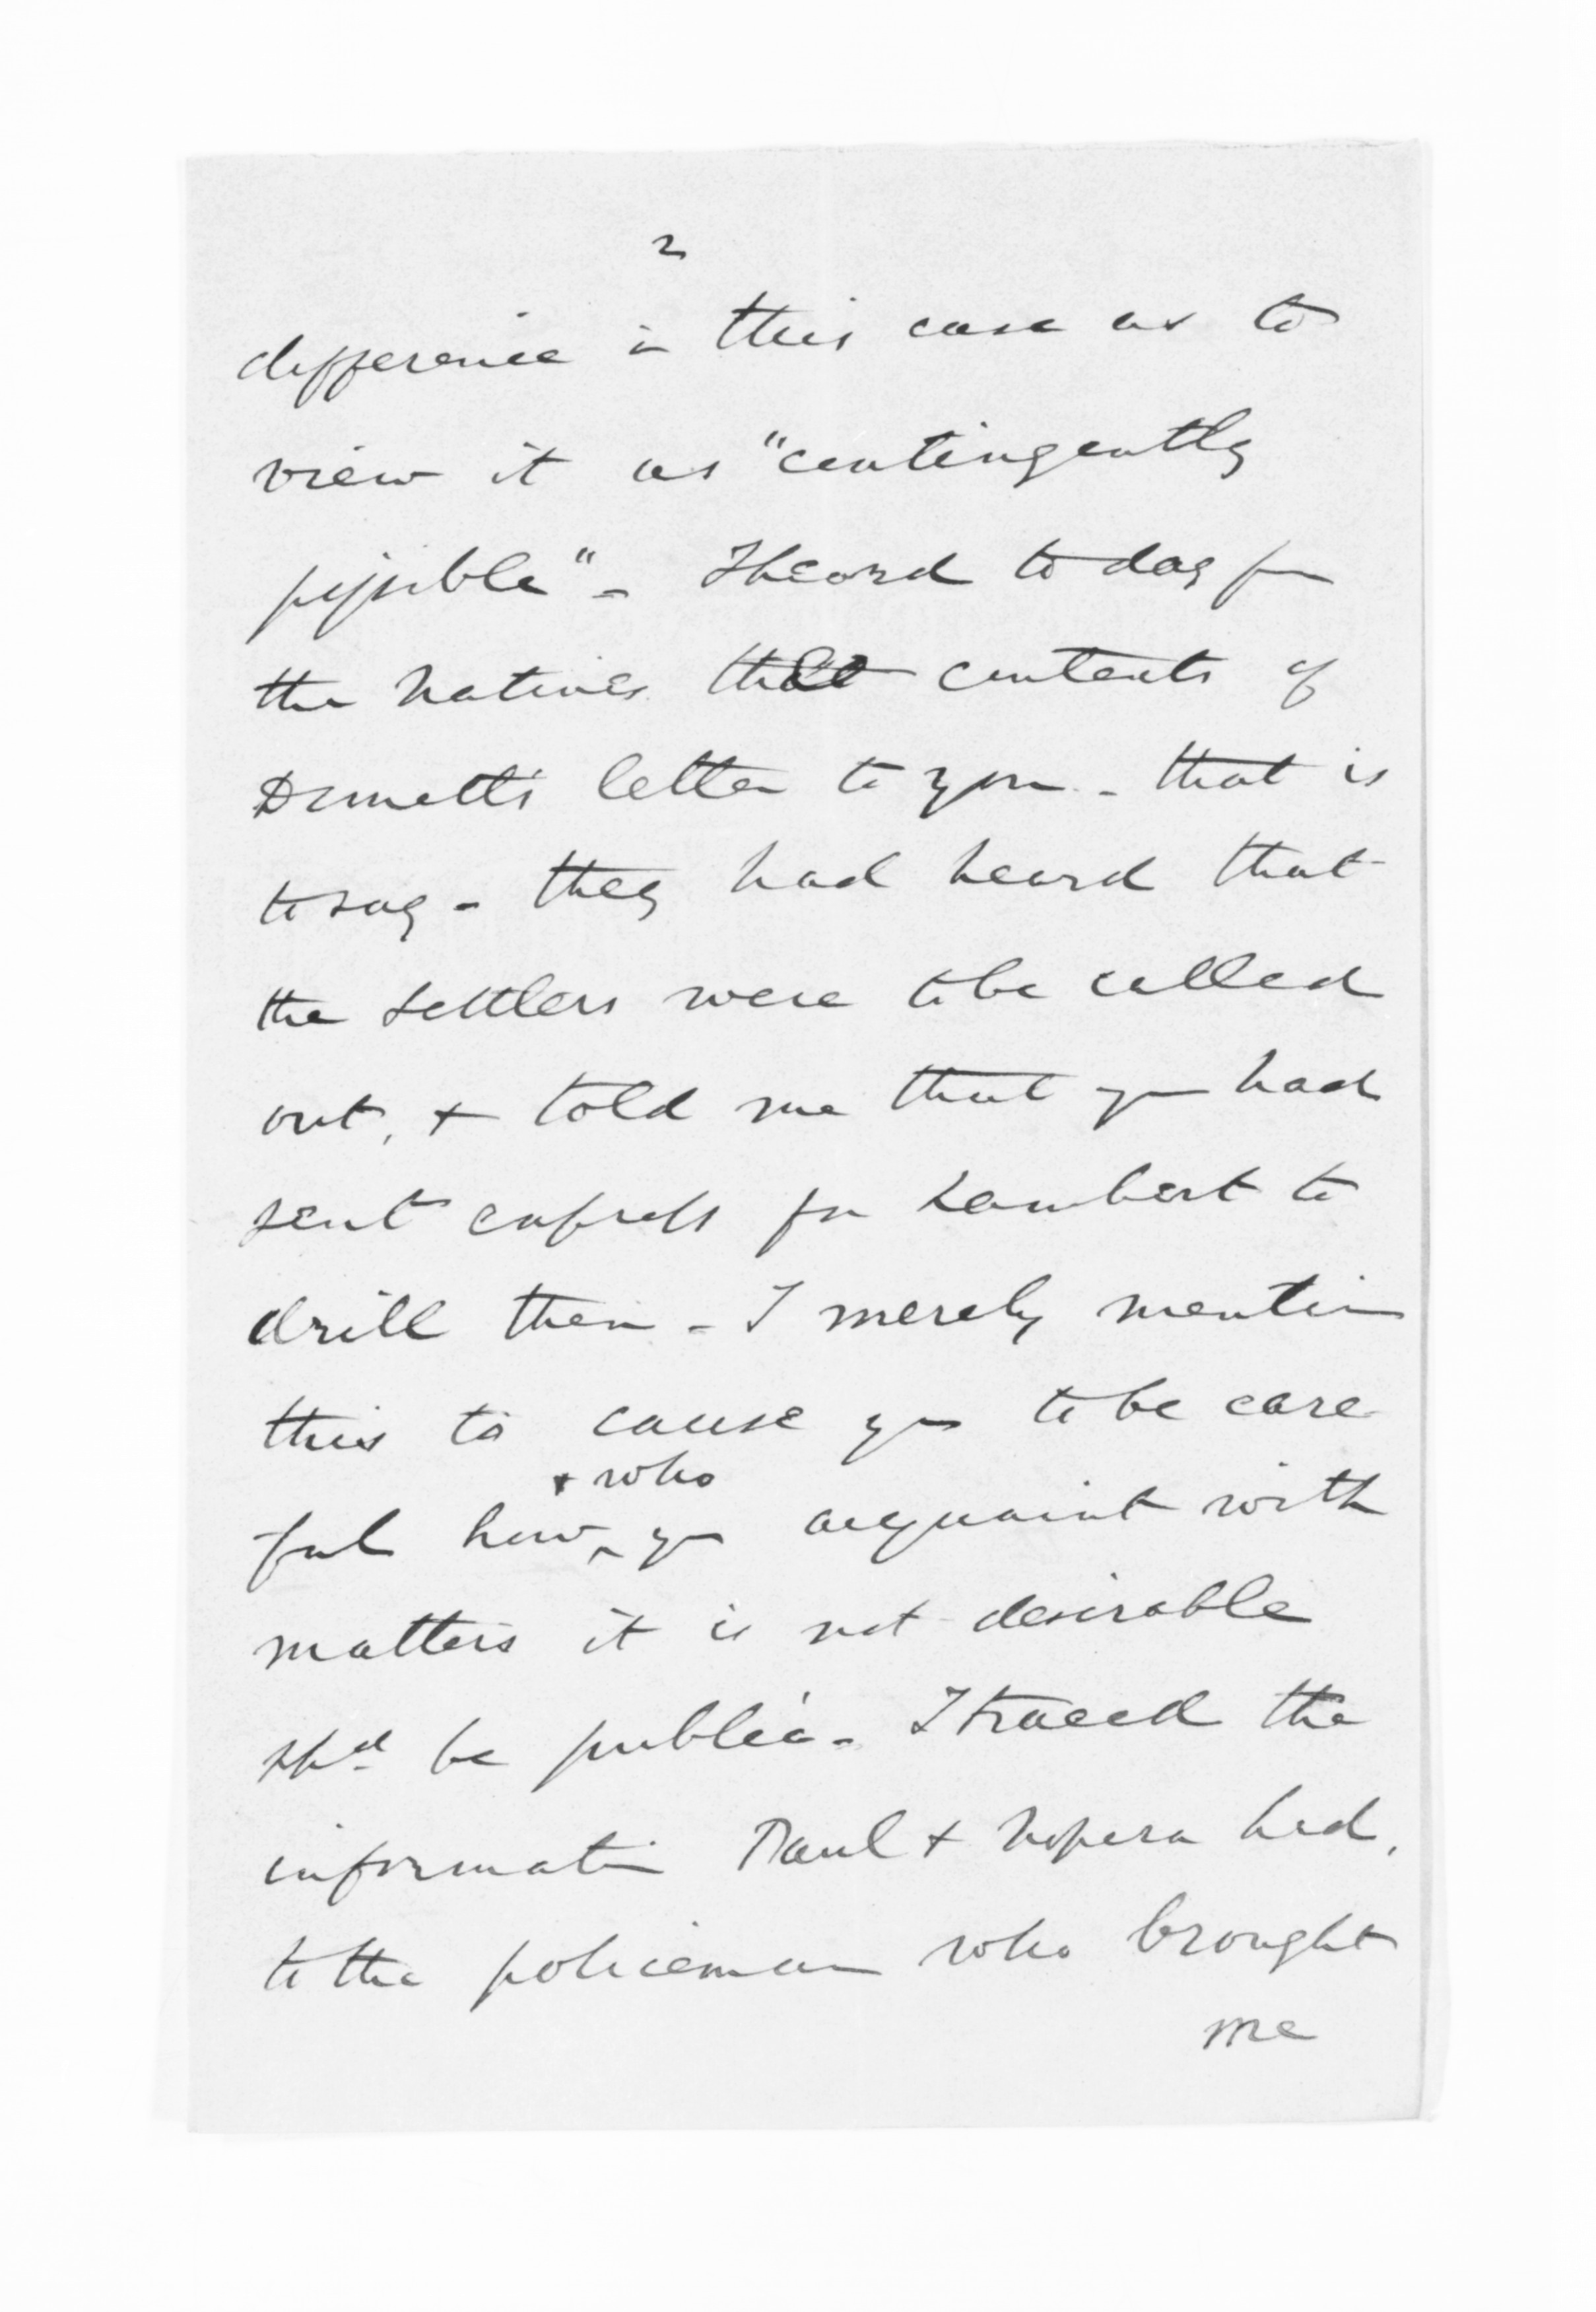 2
difference in this case as to
view it as "contingently
possible" - I heard today from
the natives the contents of
letter to you - that is
to say - they had heard that
the settlers were to be called
out, + told me that you had
sent express for Lambert to
drill them - I merely mention
this to cause you to be care
+ who
ful how you acquaint with
matters it is not desirable
shd be public. I traced the
information Paul + Hopera had,
to the policeman who brought
me